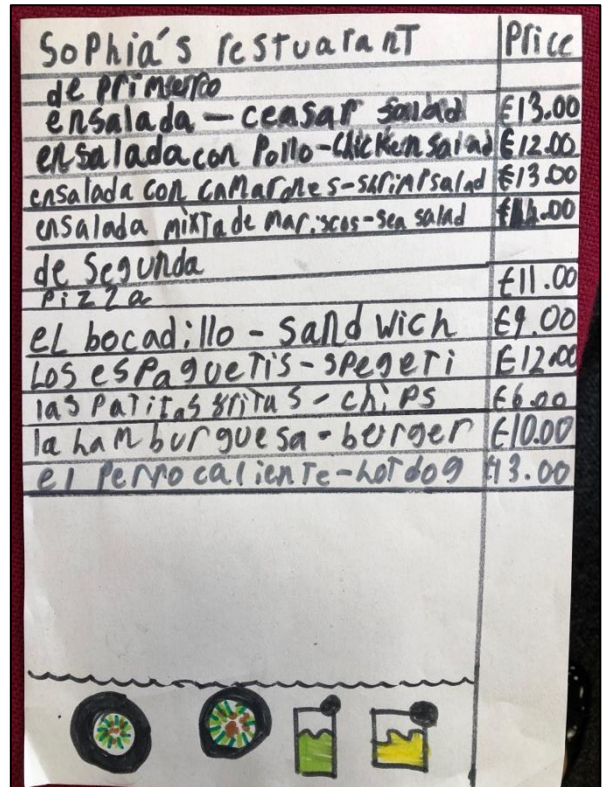 Sophia's restuarant Price
de primerro
ensalada - ceasar salad €13.00
ensalada con Pollo-chicken salad €12.00
ensalada con camarones-shrimpsalad €13.00
ensalada mixta de mariscos-sea salad
de Segunda
Pizza €11.00
el bocadillo - sandwich €9.00
Los espaguetis-spegeti €12.00
las patitas fritas - chips €6.00
la hamburguesa - berger €10.00
el perro caliente-hotdog €13.00